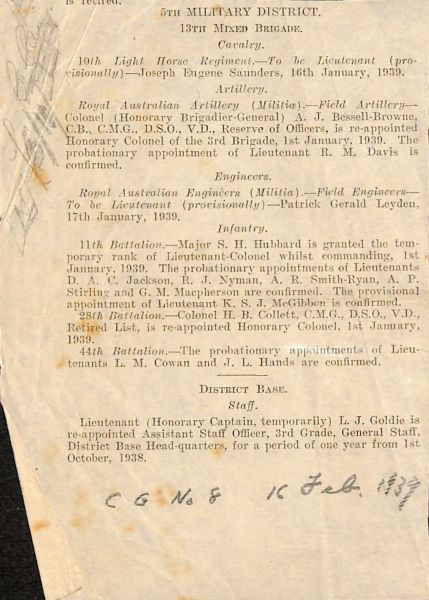 is retired.
5TH MILITARY DISTRICT.
13TH MIXED BRIGADE.
Cavalry.
10th Light Horse Regiment.—To be Lieutenant (pro-
visionally)—Joseph Eugene Saunders, 16th January, 1939.
Artillery.
Royal Australian Artillery (Militia).—Field Artillery—
Colonel (Honorary Brigadier-General) A. J. Bessell-Browne,
C.B., C.M.G., D.S.O., V.D., Reserve of Officers, is re-appointed
Honorary Colonel of the 3rd Brigade, 1st January, 1939. The
probationary appointment of Lieutenant R. M. Davis is
confirmed.
Engineers.
Royal Australian Engineers (Militia).—Field Engineers—
To be Lieutenant (provisionally)—Patrick Gerald Leyden,
17th January, 1939.
Infantry.
11th Battalion.—Major S. H. Hubbard is granted the tem-
porary rank of Lieutenant-Colonel whilst commanding, 1st
January, 1939. The probationary appointments of Lieutenants
D. A. C. Jackson, R. J. Nyman, A. R. Smith-Ryan, A. P.
Stirling and G. M. Macpherson are confirmed. The provisional
appointment of Lieutenant K. S. J. McGibbon is confirmed.
28th Battalion.—Colonel H. B. Collett, C.M.G., D.S.O., V.D.,
Retired List, is re-appointed Honorary Colonel, 1st January,
1939.
44th Battalion.—The probationary appointments of Lieu-
tenants L. M. Cowan and J. L. Hands are confirmed.
DISTRICT BASE.
Staff.
Lieutenant (Honorary Captain, temporarily) L. J. Goldie is
re-appointed Assistant Staff Officer, 3rd Grade, General Staff,
District Base Head-quarters, for a period of one year from 1st
October, 1938.
C G No 8 16 Feb. 1939